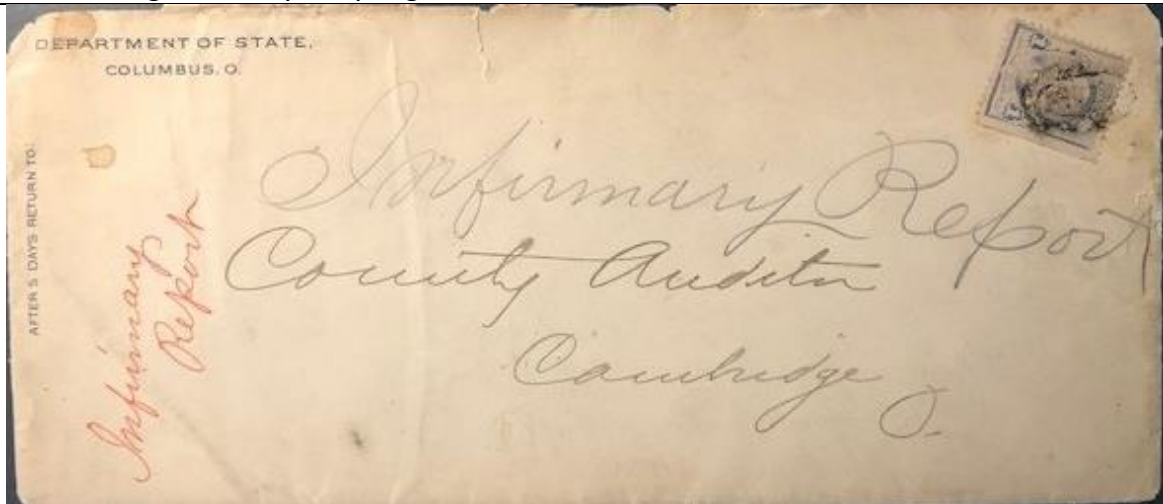 DEPARTMENT OF STATE,
COLUMBUS. O.
AFTER 5 DAYS RETURN TO:
Infirmary
Report
Infirmary Report
County Auditor
Cambridge
O.